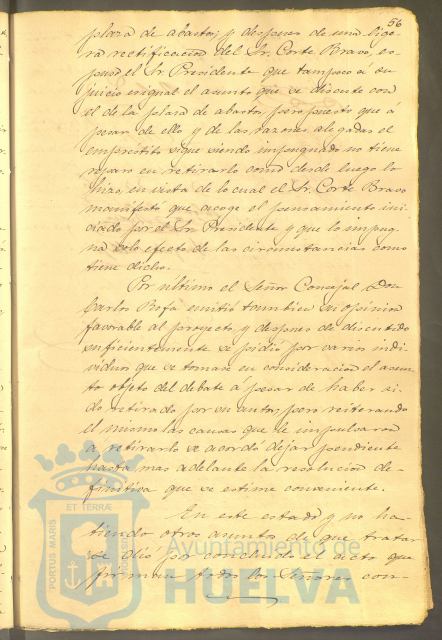 56
plaza de abastos; y despues de una lige-
ra rectificacion del Sr. Corte Bravo, ex-
puso el Sr. Presidente que tampoco á su
juicio es igual el asunto que se discute con
el de la plaza de abastos, pero puesto que á
pesar de ello y de las razones alegadas el
empréstito sigue siendo impugnado no tiene
reparo en retirarlo como desde luego lo
hizo, en vista de lo cual el Sr. Corte Bravo
manifestó que acoge el pensamiento ini-
ciado por el Sr. Presidente y que lo impug-
na solo efecto de las circunstancias como
tiene dicho.
Por ultimo el Señor Concejal Don
Carlos Rofa emitió tambien su opinion
favorable al proyecto, y despues de discutido
suficientemente se pidió por varios indi-
viduos que se tomase en consideracion el asun-
to objeto del debate á pesar de haber si-
do retirado por su autor, pero reiterando
el mismo las causas que le impulsaron
á retirarlo se acordó dejar pendiente
hasta mas adelante la resolucion de-
finitiva que se estime conveniente.
En este estado y no ha-
biendo otros asuntos de que tratar
se dió por concluido el acto que
firman todos los Señores con-
PORTUS MARIS
ET TERRÆ
Ayuntamiento de
HUELVA